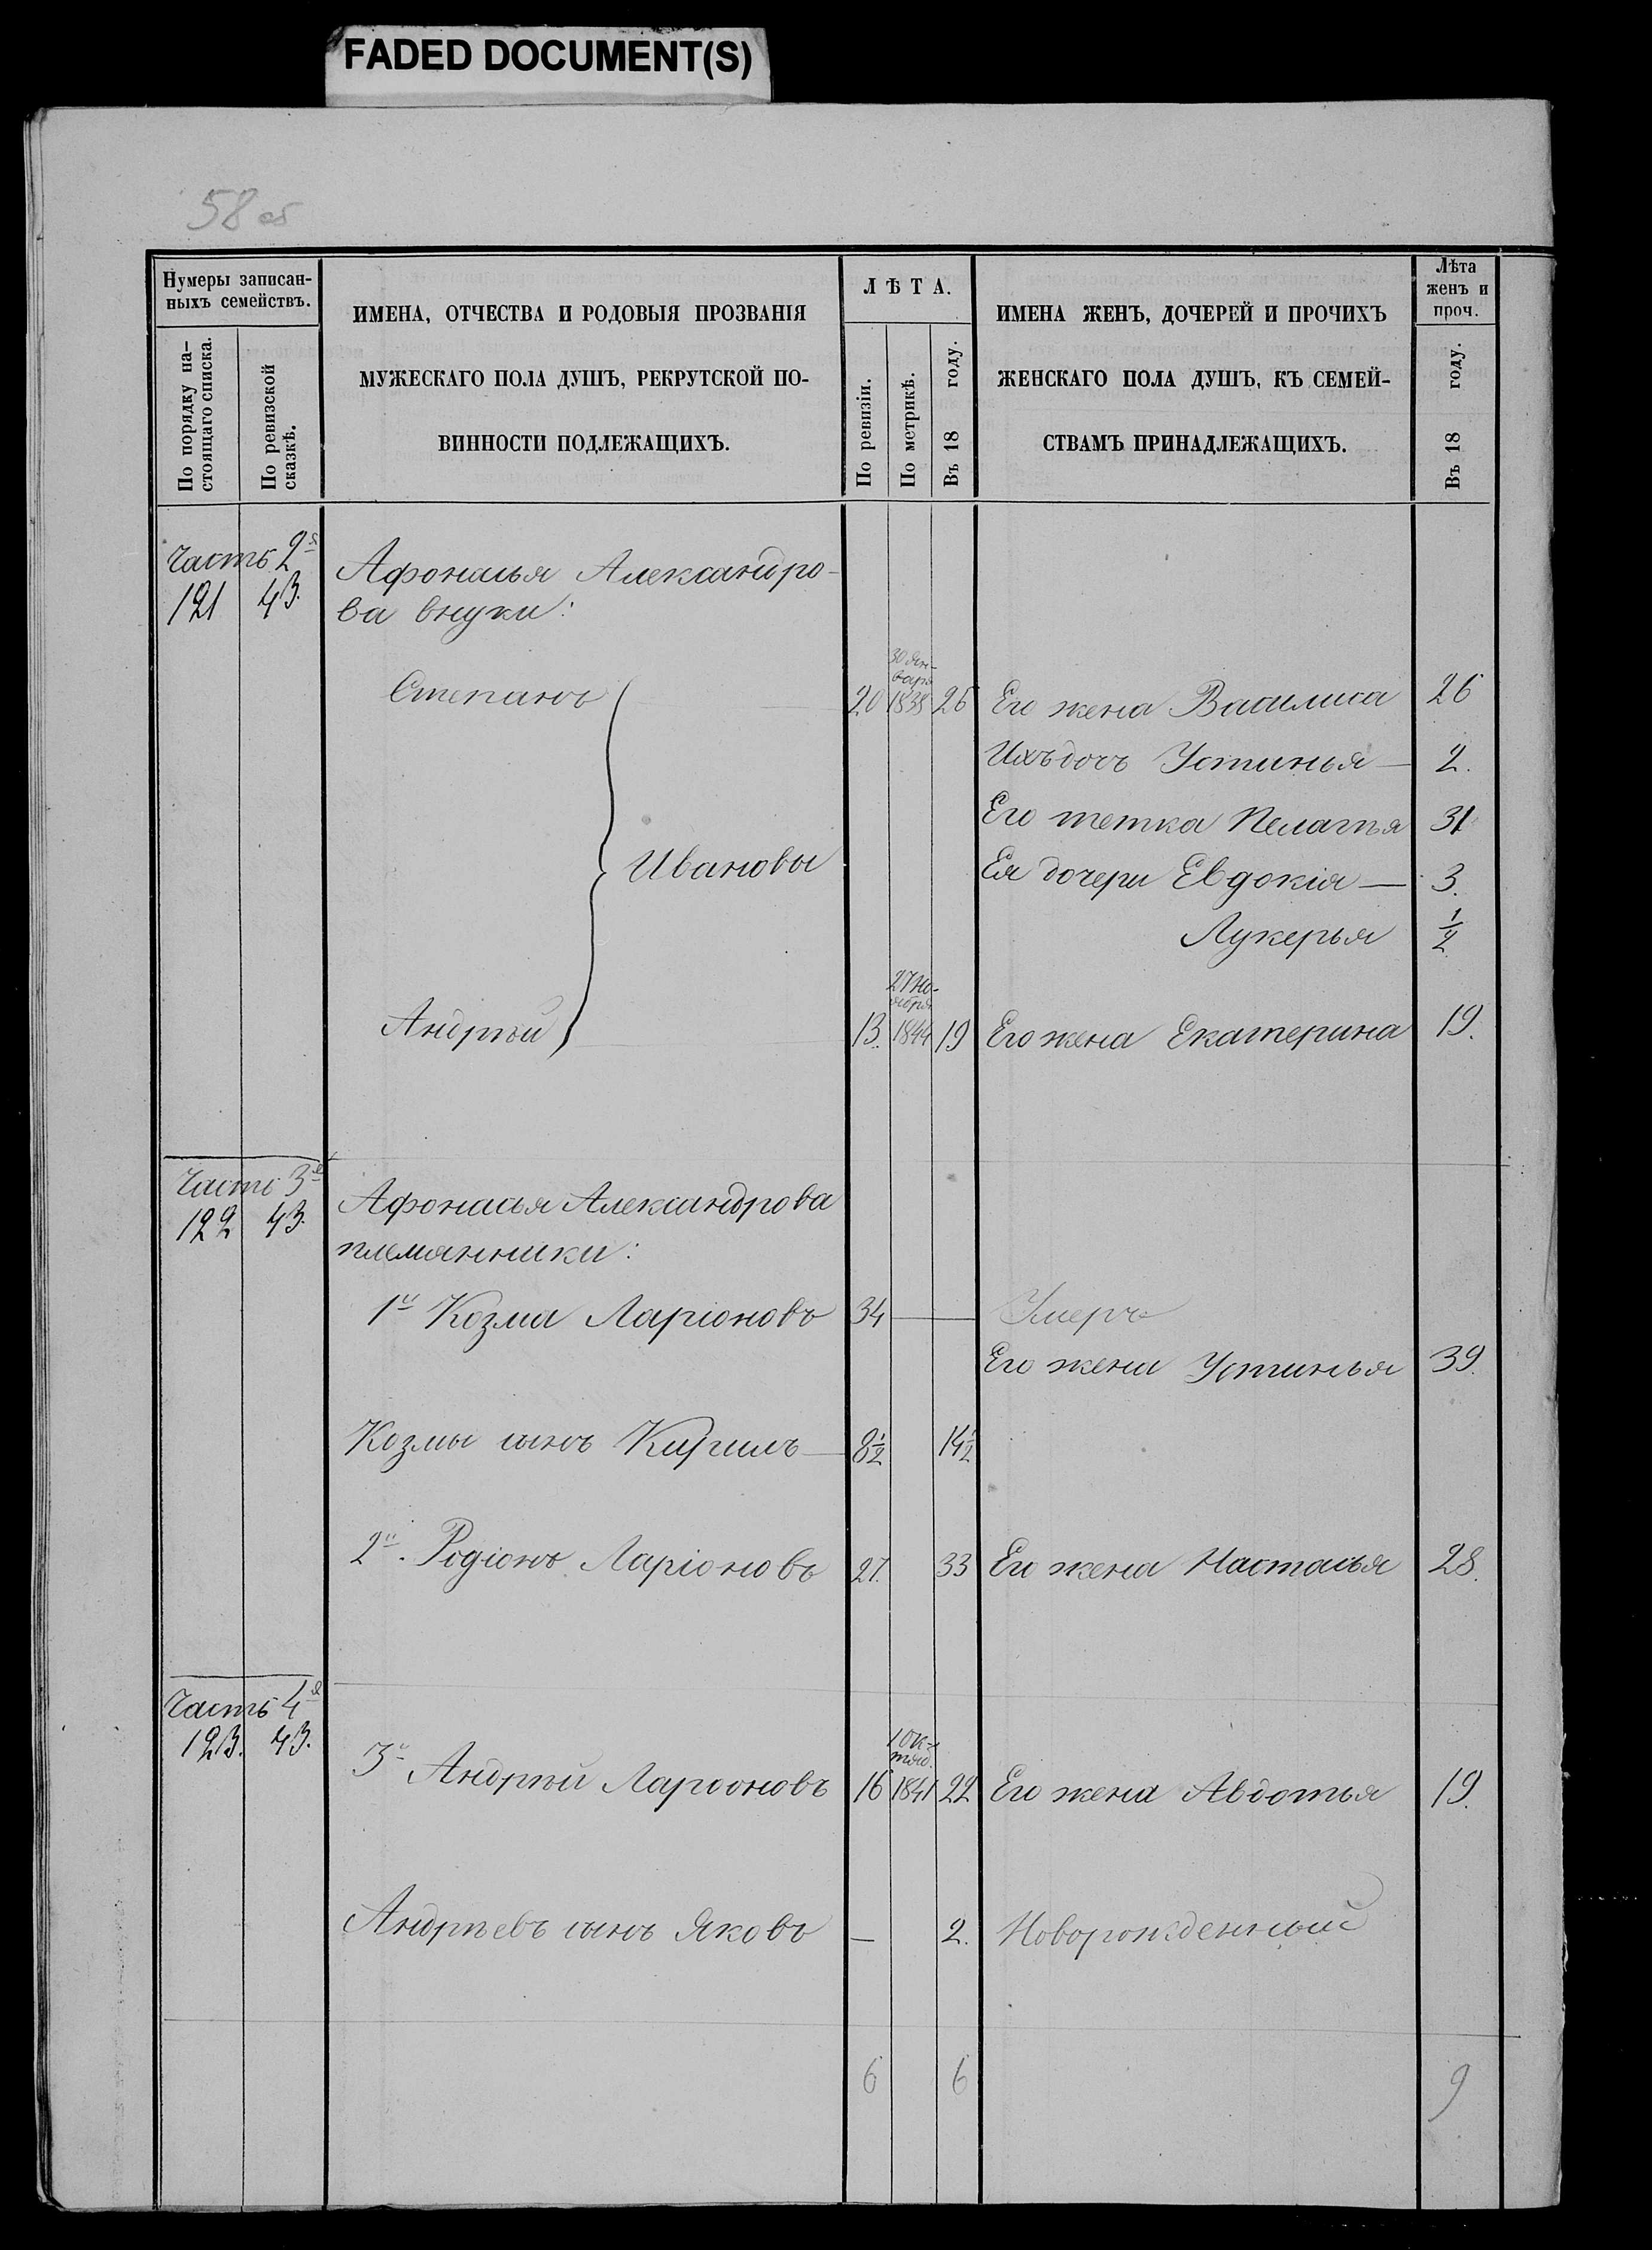 FADED DOCUMENT(S)
58 об
Нумеры записан-
ныхъ семействъ.
По порядку на-
стоящаго списка.
По ревизской
сказкѣ.
ИМЕНА, ОТЧЕСТВА И РОДОВЫЯ ПРОЗВАНІЯ
МУЖЕСКАГО ПОЛА ДУШЪ, РЕКРУТСКОЙ ПО-
ВИННОСТИ ПОДЛЕЖАЩИХЪ.
ЛѢТА.
По ревизіи.
По метрикѣ.
Въ 18 году.
ИМЕНА ЖЕНЪ, ДОЧЕРЕЙ И ПРОЧИХЪ
ЖЕНСКАГО ПОЛА ДУШЪ, КЪ СЕМЕЙ-
СТВАМЪ ПРИНАДЛЕЖАЩИХЪ.
Лѣта
женъ и
проч.
Въ 18 году.
Часть 2я
121 43.
Афонасья Александро-
ва внуки:
30 Ян-
варя
Степанъ 20 1838 26 Его жена Василиса 26
Ихъ дочь Устинья — 2.
Его тетка Пелагѣя 31
Ивановы
Ея дочери Евдокія — 3.
Лукерья 1/2
27 Но-
ября
Андрѣй 13. 1844 19 Его жена Екатерина 19.
Часть 3я
122 43.
Афонасья Александрова
племянники:
1й Козма Ларіоновъ 34 — Умеръ
Его жена Устинья 39.
Козмы сынъ Кирилъ — 8 1/2 14 1/2
2й. Родіонъ Ларіоновъ 27. 33 Его жена Настасья 28.
Часть 4я
123. 43.
1 Ок-
тяб.
3й Андрѣй Ларіоновъ 16 1841 22 Его жена Авдотья 19.
Андрѣевъ сынъ Яковъ — 2. Новорожденный
6 6 9